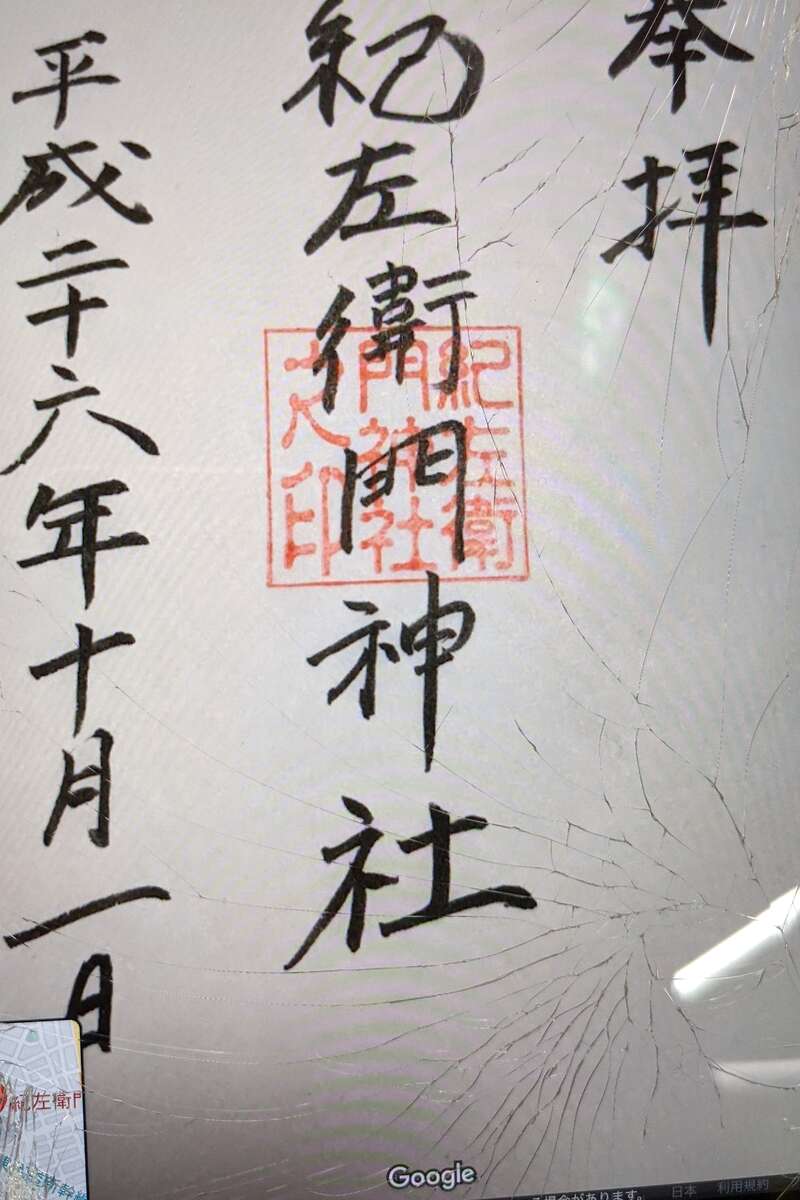 奉拝
紀左衛門神社
平成二十六年十月一日
紀左衛
門神社
之印
紀左衛門
Google
場合があります。 日本 利用規約